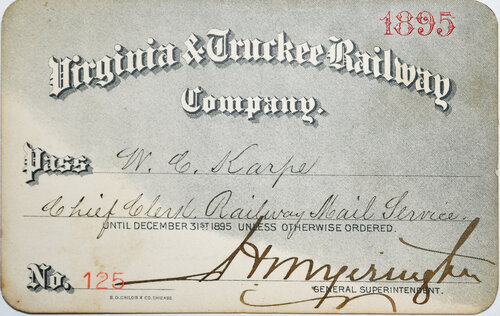 1895
Virginia & Truckee Railway
Company.
Pass W. C. Karpe
Chief Clerk, Railway Mail Service.
UNTIL DECEMBER 31ST 1895 UNLESS OTHERWISE ORDERED.
No. 125 H M Yerington
GENERAL SUPERINTENDENT.